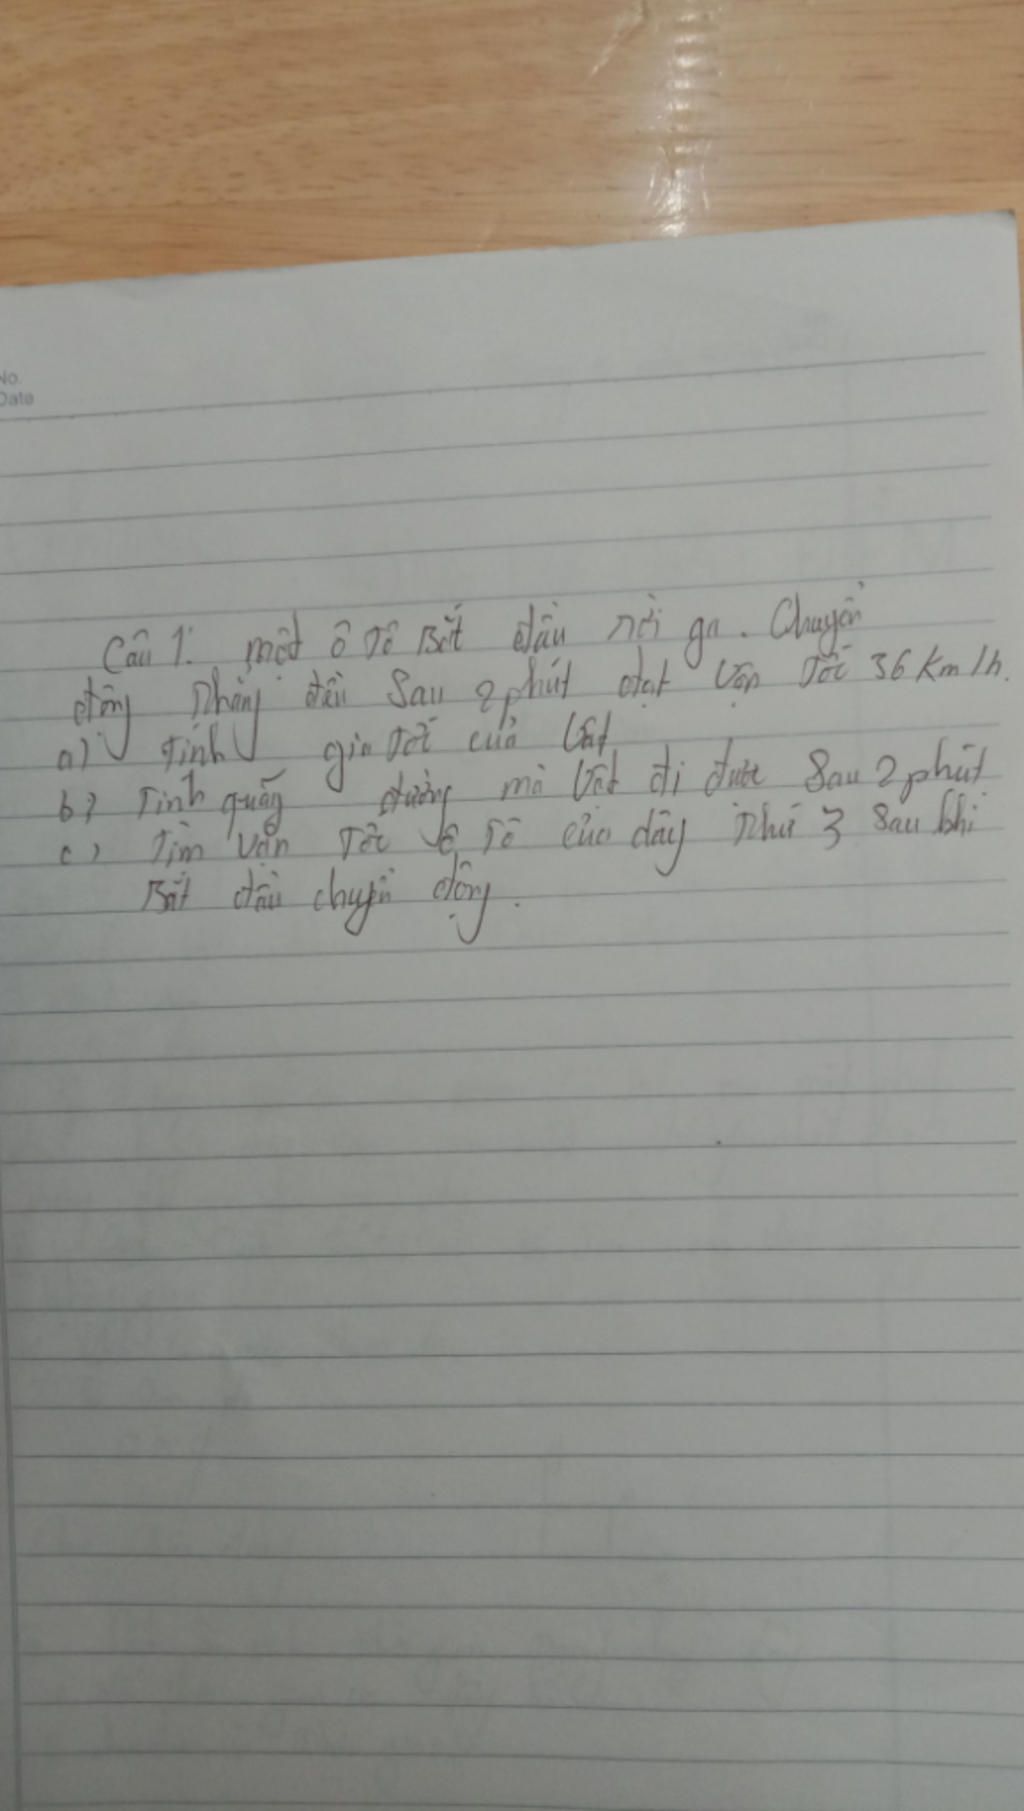 No.
Date
Câu 1: một ô tô Bắt đầu rời ga. Chuyển
động thẳng đều sau 2 phút đạt vận tốc 36 km/h.
a) Tính gia tốc của vật
b) Tính quãng đường mà vật đi được sau 2 phút
c) Tìm vận tốc ô tô của dây thứ 3 sau khi
Bắt đầu chuyển động.